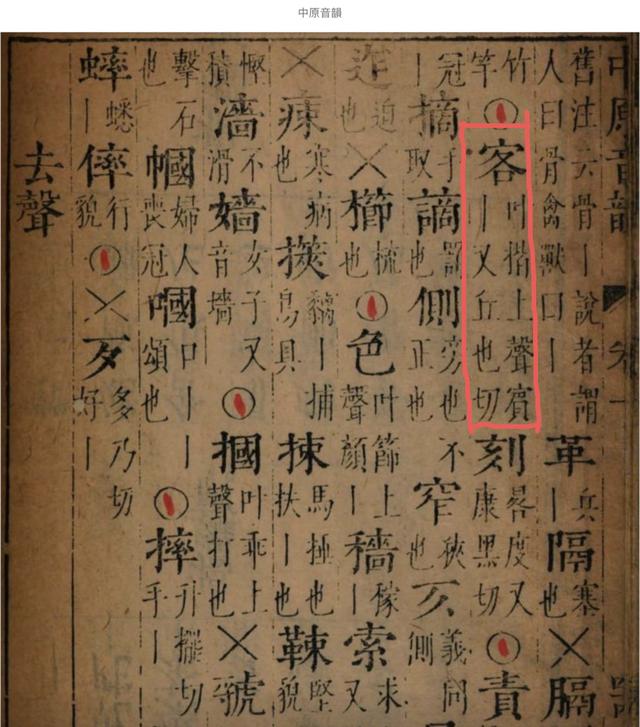 中原音韻
中原音韻 卷一
舊注六骨｜說者謂人曰骨禽獸曰｜革兵｜隔塞也×膈
竹竿○客叶揩上聲賓｜又丘也切刻晷度又康黑切○責
冠｜摘手取謫罰也側旁也不正也窄狹也仄義同側
迮迫也×櫛梳也○色叶篩上聲顏｜穡稼｜索求又
×寒病也黐｜捕鳥具捒馬捶也扶｜堅貌
慳積濇不滑嬙女子又音墻○摑叶乖上聲打也×虢
擊石也幗婦人喪冠嘓口｜｜頌也○摔升擺切手｜
蟀蟋｜行貌○×歹多乃切好｜
去聲